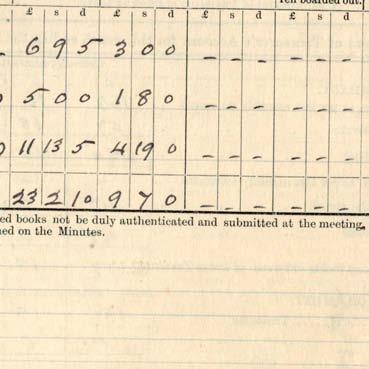 ren boarded out.
£ s d £ s d £ s d £ s d
6 9 5 3 0 0 - - - - - -
5 0 0 1 8 0 - - - - - -
11 13 5 4 19 0 - - - - - -
23 2 10 9 7 0 - - - - - -
ed books not be duly authenticated and submitted at the meeting,
ed on the Minutes.